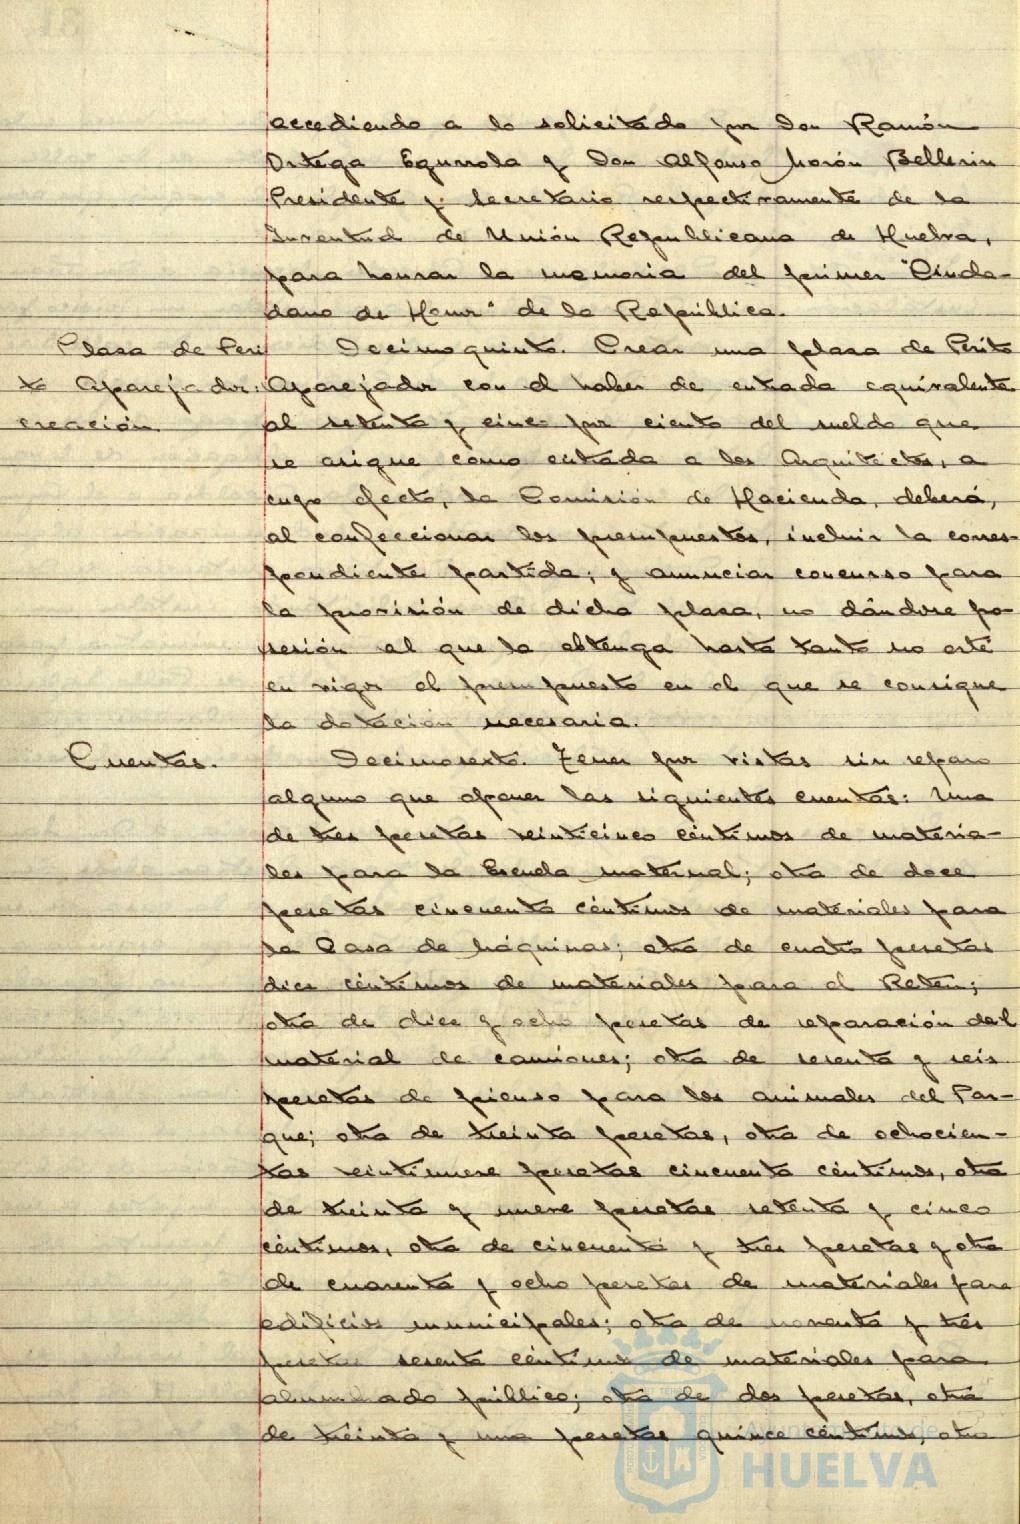 accediendo a lo solicitado por Don Ramón
Ortega Egurrola y Don Alfonso Morón Bellerin
Presidente y Secretario respectivamente de la
Juventud de Unión Republicana de Huelva,
para honrar la memoria del primer "Ciuda-
dano de Honor" de la República.
Plasa de Peri
to Aparejador:
creación.
Decimoquinto. Crear una plasa de Perito
Aparejador con el haber de entrada equivalente
al setenta y cinco por ciento del sueldo que
se asigue como entrada a los Arquitectos, a
cuyo efecto, la Comisión de Hacienda, deberá,
al confeccionar los presupuestos, incluir la corres-
pondiente partida; y anunciar concurso para
la provisión de dicha plasa, no dándose po-
sesión al que la obtenga hasta tanto no esté
en vigor el presupuesto en el que se consigue
la dotación necesaria.
Cuentas.
Decimosexto. Tener por vistas sin reparo
alguno que oponer las siguientes cuentas: Una
de tres pesetas veinticinco céntimos de materia-
les para la Escuela maternal; otra de doce
pesetas cincuenta céntimos de materiales para
la Casa de Máquinas; otra de cuatro pesetas
dies céntimos de materiales para el Reten;
otra de dies y ocho pesetas de reparación del
material de camiones; otra de sesenta y seis
pesetas de pienso para los animales del Par-
que; otra de treinta pesetas, otra de ochocien-
tas veintinueve pesetas cincuenta céntimos, otra
de treinta y nueve pesetas setenta y cinco
céntimos, otra de cincuenta y tres pesetas y otra
de cuarenta y ocho pesetas de materiales para
edificios municipales; otra de noventa y tres
pesetas sesenta céntimos de materiales para
alumbrado público; otra de dos pesetas, otra
de treinta y una pesetas quince céntimos, otra
Ayuntamiento de
HUELVA